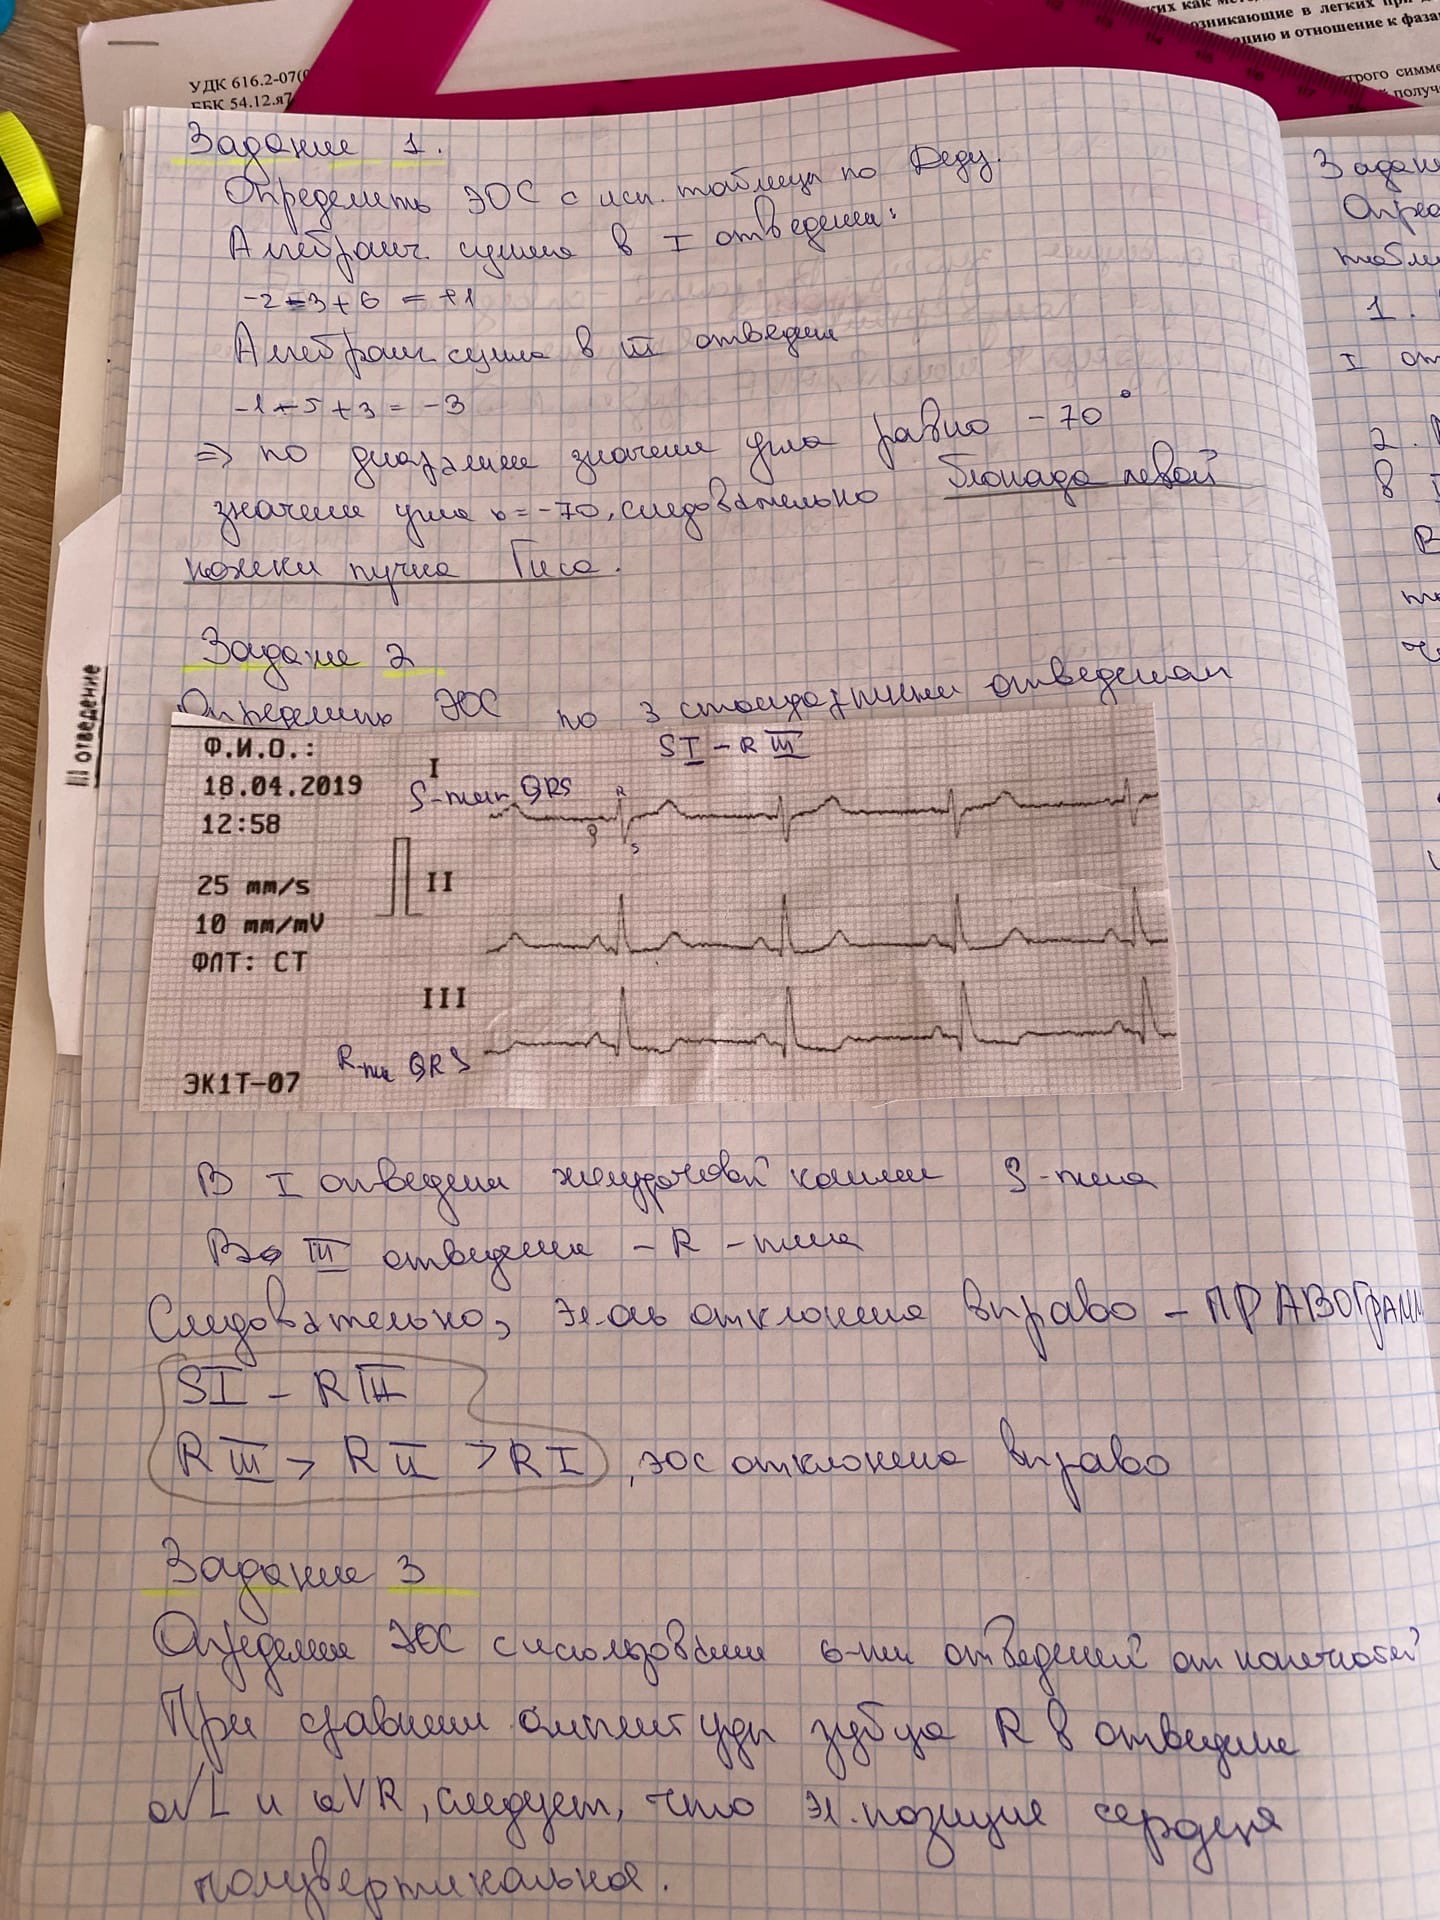 УДК 616.2-07(0
ББК 54.12.я7
озникающие в легких при д
цию и отношение к фаза
трого симме
получ
Задание 1.
Определить ЭОС с исп. таблицы по Деду.
Алгебраич. сумма в I отведении:
-2-3+6 = +1
Алгебраич сумма в III отведен
-1-5+3 = -3
⇒ по диаграмме значение угла равно -70°
значение угла α=-70, следовательно блокада левой
ножки пучка Гиса.
Задание 2
Определить ЭОС по 3 стандартным отведениям
III отведение
Ф.И.О.:
18.04.2019
12:58
25 mm/s
10 mm/mV
ФЛТ: СТ
ЭК1Т-07
SI - R III
I
S-тип QRS
R
q
s
II
III
R-тип QRS
В I отведении желудочковый компл S-типа
Во III отведении - R - типа
Следовательно, эл.ось отклонена вправо - ПРАВОГрАММ
SI - R III
R III > R II > R I, ЭОС отклонена вправо
Задание 3
Определение ЭОС с использованием 6-ти отведений от конечностей
При сравнении амплитуды зубца R в отведение
aVL и aVR, следует, что эл. позиция сердца
полувертикальная.
Задани
Опре
табли
1.
I от
2.
в I